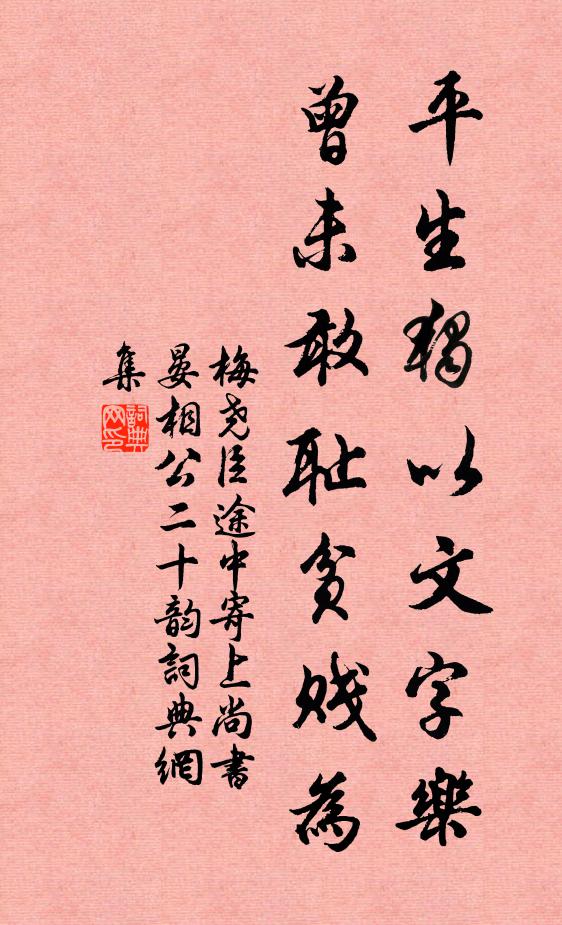 平生獨以文字樂
曾未敢耻貧賤為
梅尧臣途中寄上尚書
晏相公二十韵詞典網
集
詞典网印